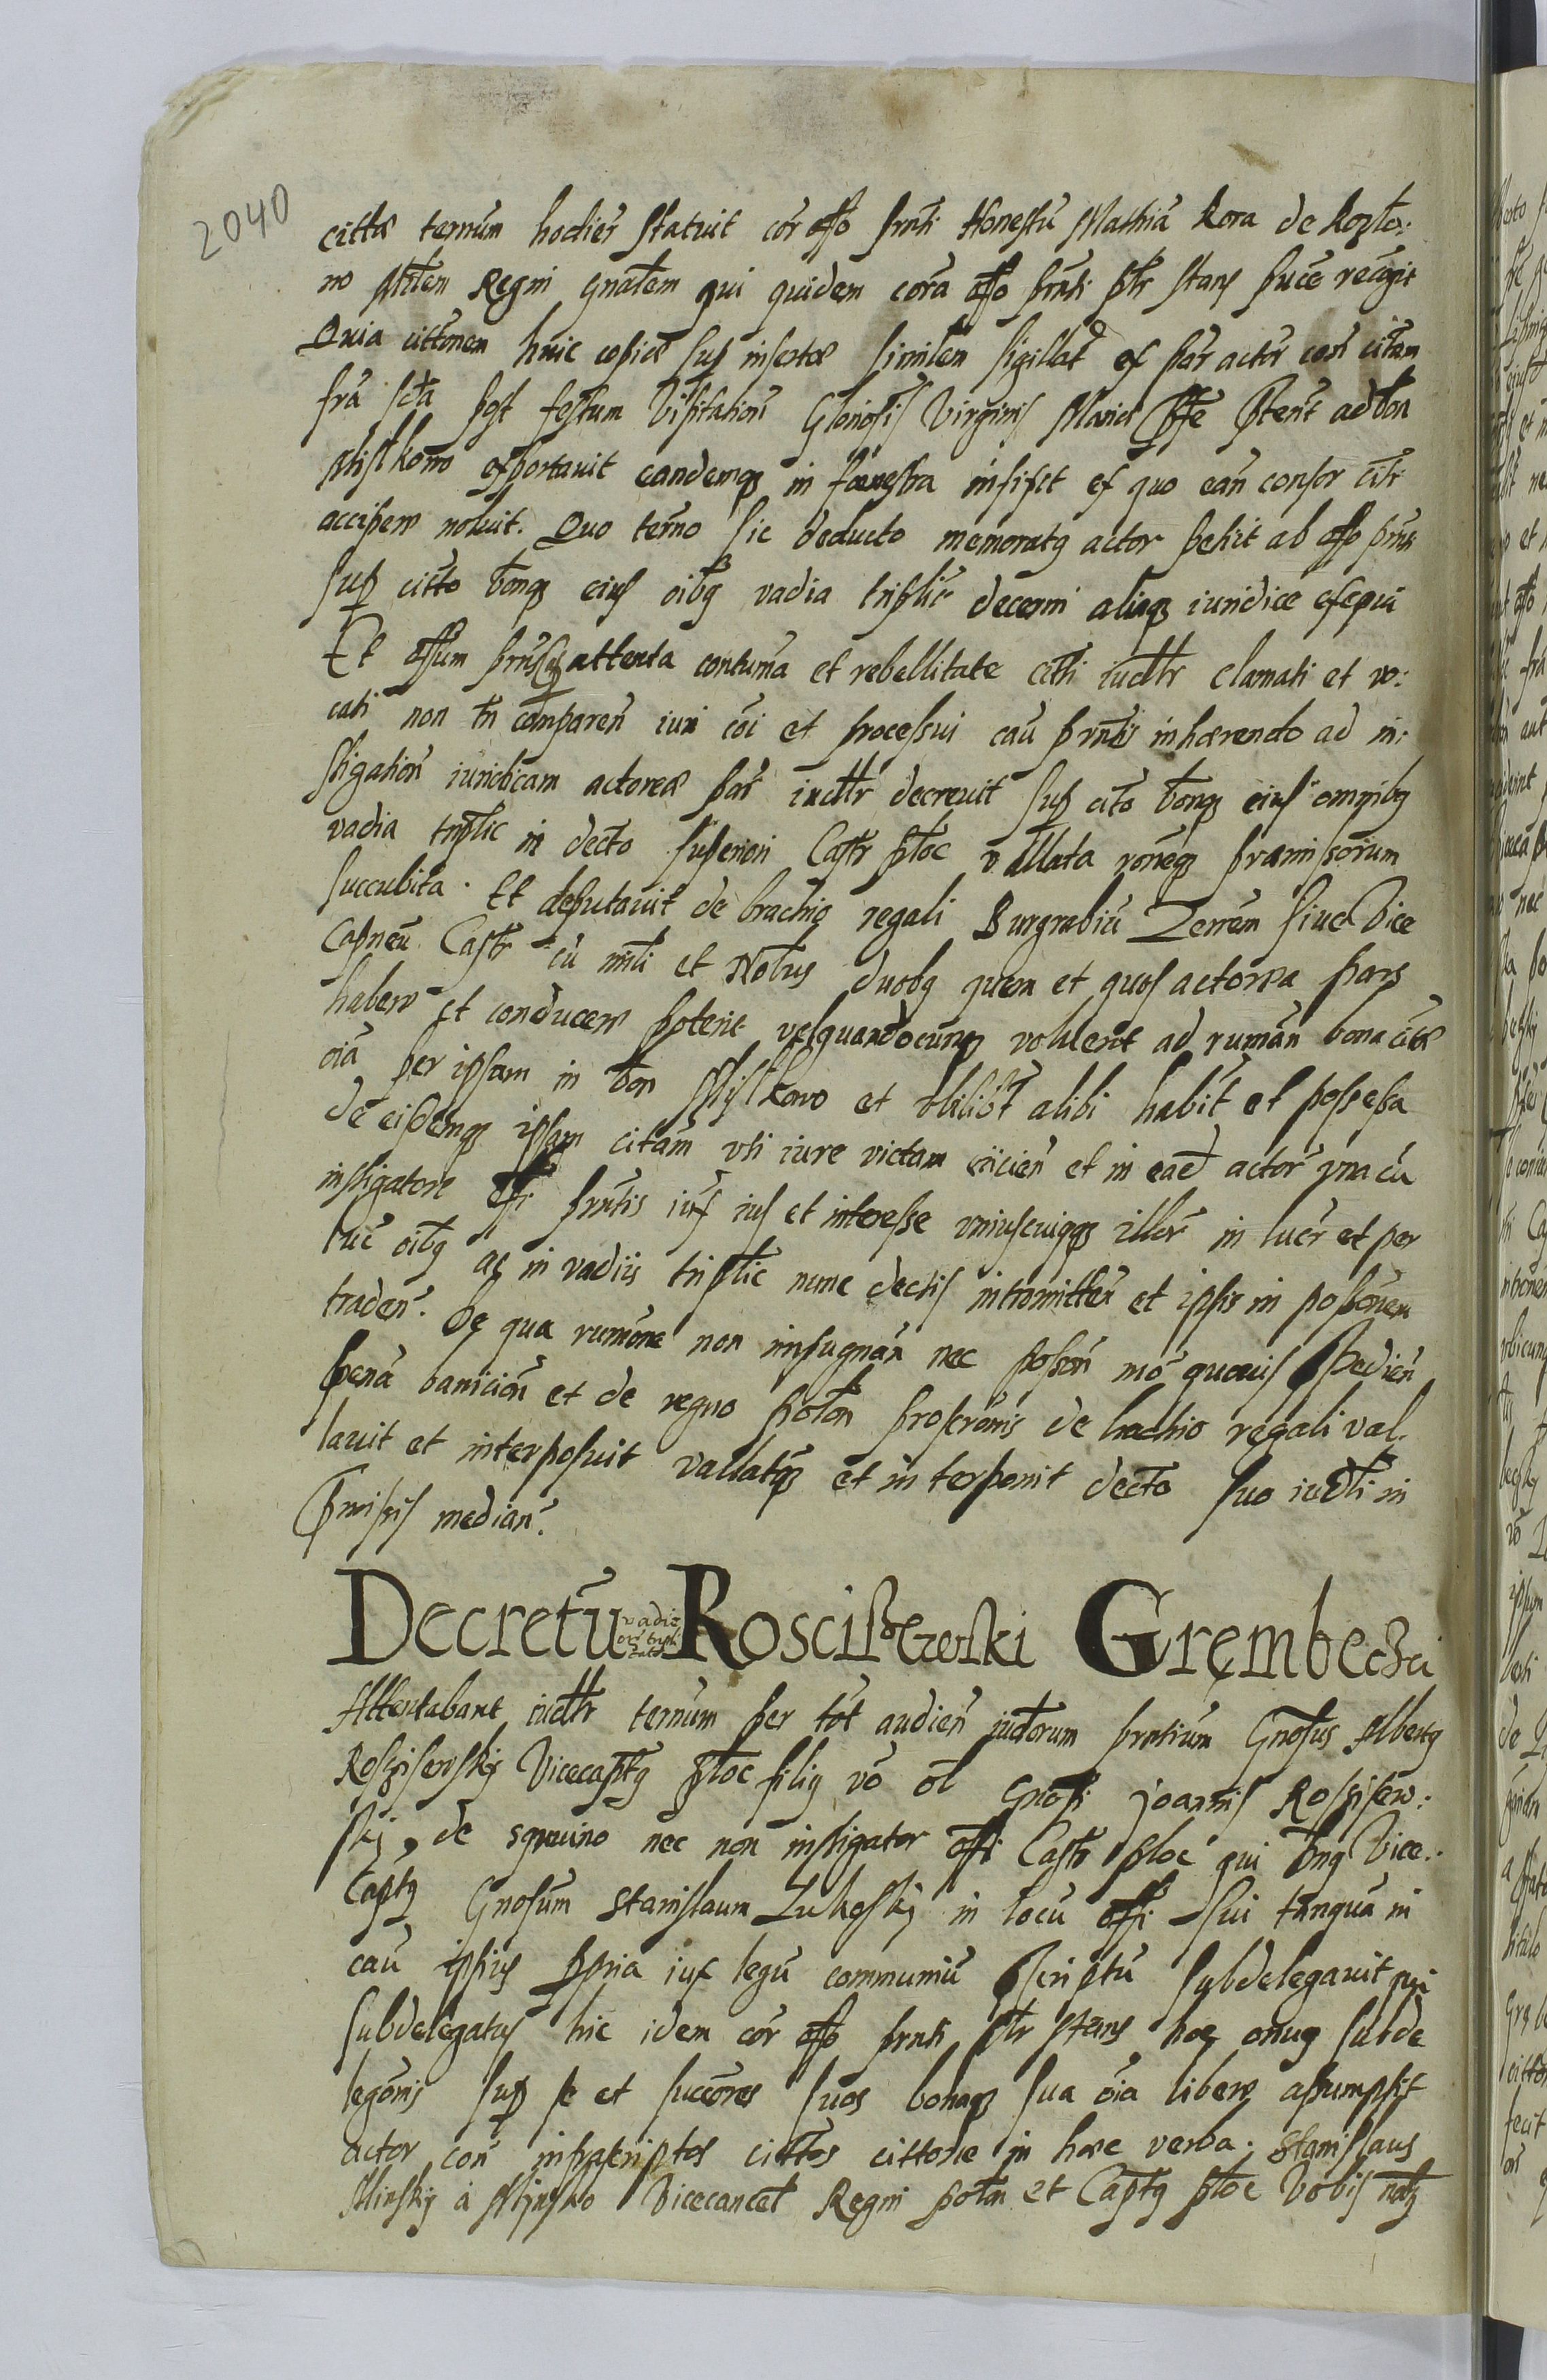 2040
cittae termm hodier statuit cor offo prnti Honestu Mathia Kora de Kozlo:
no Mitem Regni gnalem qui quidem cora offo prnti ptr stans suce recogit
Quia cittonem huic copiae sup insertae similem sigillat ex par actor con citam
fra scda post festum Visitationis Gloriosis Virginis Mariae Pffe Ptent ad bon
exportavit eandemq in foenestra infixit ex quo ean consor citi
accipere noluit. Quo termo sic deducto memoratq actor petiit ab offo prnti
sup citto bonq eius oibq vadia triplic decerni aliaq iuridice exequi
Et offum prns attenta contuma et rebellitate citti iudtr clamati et vo:
cati non tn comparen iuri coi et processui cau prntis inhaerendo ad in:
stigation iuridicam actoreae par iudtr decrevit sup cito bonq eius omnibq
vadia triplic in decto superiori Castr ploc vallata roneq praemissorum
succubita. Et deputavit de brachio regali Burgrabiu Terrem sive Vice
Capneu Castr cu mnli et Nobus duobq quem et quos actorea pars
habere et conducere poterit vel quandocunq voluerit ad ruman bona citae
oia per ipsam in bon et ubilibt alibi habit et possessa
de eisdemq ipsam citam uti iure victam eiicien et in ead actor una cu
instigatore offi prntis iux ius et interesse uniuscuiqq illor in lucr et per
luc oibq ac in vadiis triplic nunc dectis intromitten et ipsis in possonem
traden. De qua rumone non impugnan nec posson mo quovis Pedien
pena banicion et de regno Polon proscronis de brachio regali val:
lavit et interposuit vallatq et interponit decto suo iudli in
Pmissis median.
Decretu vadia Roscißewski Grembeczki
Attentabant iudtr termm per tot audien iudorum prntium Gnosus Albertq
Roszisewskij Vicecaptq ploc filiq vo ol Gnosi Joannis Roszisew:
skij, de nec non instigator offi Castr ploc qui Dnq Vice:
Captq Gnosum Stanislaum Zukoskij in locu offi sui tanqua in
cau ipsius ppria iux legu communiu Pscriptu subdelegavit qui
subdelegatus hic idem cor offo prnti ptr stans hoc onuq subde
legonis sup se et succores suos bonaq sua oia libere assumpsit
actor con infrascriptos cittos cittone in haec verba. Stanislaus
Minskij à Minsko Vicecancel Regni polon et Captq ploc Vobis nobq